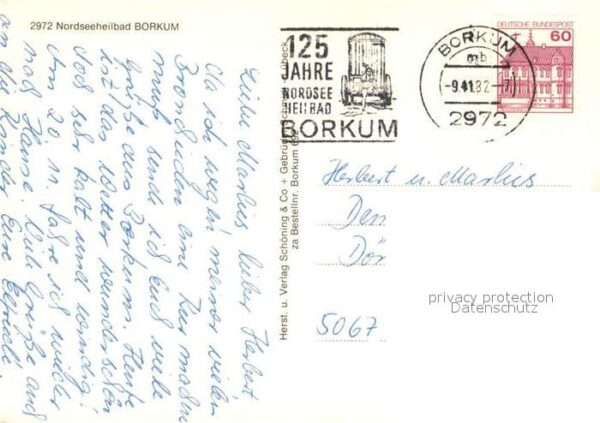 2972 Nordseeheilbad BORKUM
Liebe Marlies lieber Herbert
Da ich wegen meiner vielen
Bronchitiden eine Kur machen
muß sende ich Euch viele
Grüße aus Borkum. Heute
ist das Wetter wunderschön
sehr kalt und windig.
Am 20. 11. fahre ich wieder
n. Hause. Viele Grüße auch
an die Kinder Eure
Herst. u. Verlag Schöning & Co + Gebrüder Lübeck
za Bestellnr. Borkum
125
JAHRE
NORDSEE
HEILBAD
BORKUM
BORKUM
mb
-9.11.82-
2972
DEUTSCHE BUNDESPOST
60
Herbert u. Marlies
Den
Dör
5067
privacy protection
Datenschutz